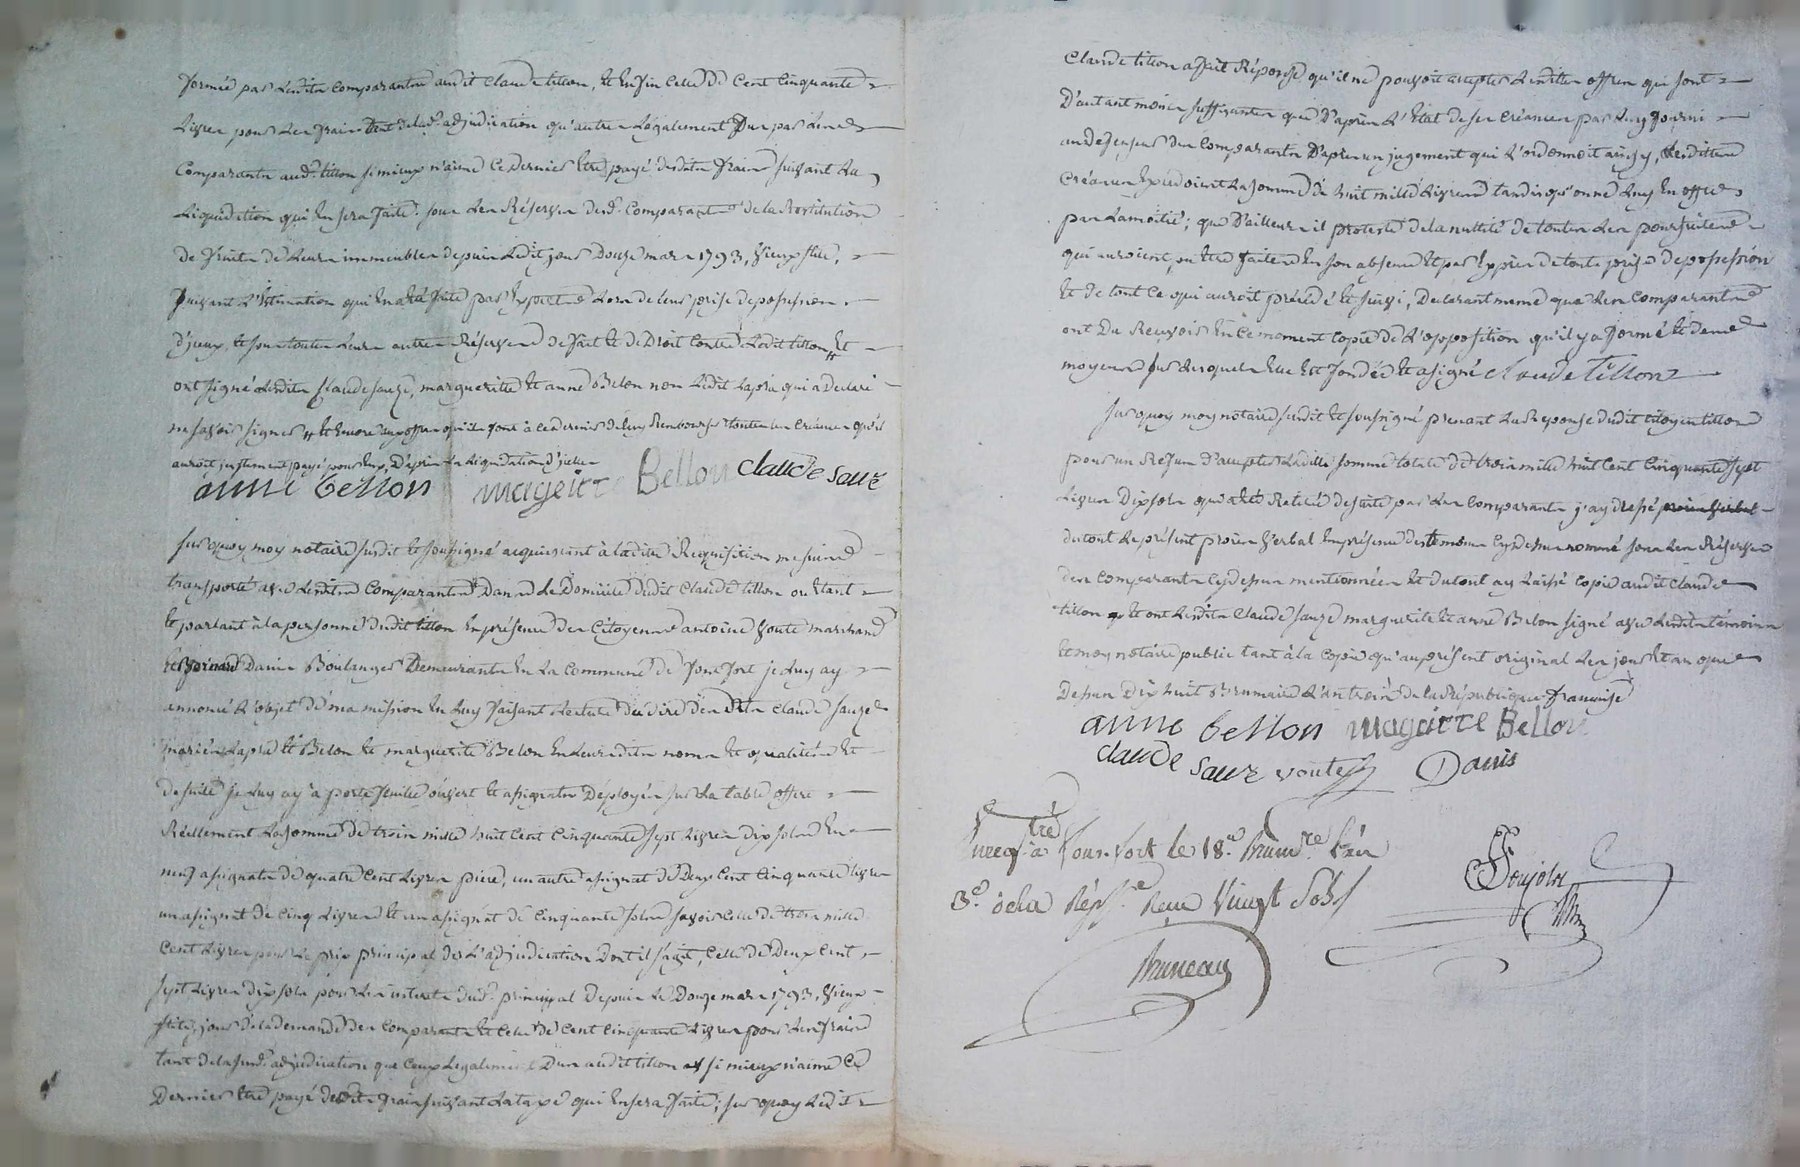 formée par lesdits comparants audit Claude tillon, et enfin celle de cent cinquante
Livres pour les frais tant de lad.e adjudication qu'autres légalement dus par les
Comparants aud.t tillon si mieux n'aime ce dernier être payé desdits frais suivant la
Liquidation qui en sera faite. sous les Réserves desd.ts Comparants de la Restitution
de fruits de leurs immeubles depuis ledit jour douze mars 1793, vieux stile,
suivant l'Estimation qui en a été faite par Experts Lors de leur prise de possession
d'yceux, et sous toutes leurs autres Réserves de fait et de Droit contre Ledit tillon, et
ont signé lesdits Claude sauze, margueritte et anne Belon non Ledit Lapra qui a declaré
ne savoir signer et encore aux offres qu'ils font à ce dernier de luy Rembourser toutes les créances qu'il
auroit justement payé pour eux, D'après la liquidation d'jcelles
anne bellon mageirte Bellon claude sauze
sur quoy moy notaire susdit et soussigné acquiesçant à ladite Requisition me suis
transporté avec lesdits Comparants Dans le Domicile dudit Claude tillon où étant
et parlant à la personne dudit tillon En présence des Citoyens antoine Voute marchand
et Danis Boulanger Demeurants En la Commune de fonsfort je Luy ay
annoncé l'objet de ma mission En Luy faisant Lecture du dire des dits Claude sauze
Lapra et Belon et marguerite Belon En leursdits noms et qualités et
de suite je luy ay à porte feuille ouvert et assignats Deployés sur la table offert
Réellement La somme de trois mille huit cent cinquante sept Livres dix sols En
neuf assignats de quatre cent Livres piece, un autre assignat de Deux cent cinquante livres
un assignat de cinq Livres et un assignat de cinquante sols savoir celle de trois mille
cent Livres pour le prix principal de L'adjudication Dont il s'agit, celle de Deux cent
sept Livres dix sols pour les interets dud.t principal Depuis le Douze mars 1793, vieux
stile, jour de la demande des comparants et celle de cent cinquante Livres pour les frais
tant de la susd.e adjudication que ceux Legalement Dus audit tillon si mieux n'aime ce
Dernier être payé desdits frais suivant la taxe qui en sera faite; sur quoy Ledit
Claude tillon a fait Réponse qu'il ne pouvoit accepter lesdittes offres qui sont
D'autant moins suffisantes que D'après l'Etat de ses créances par Luy fourni
au défenseur des Comparants D'après un jugement qui l'ordonnoit ainsy, lesdittes
créances Excédoient La somme de huit mille Livres tandis qu'on ne luy En offre
pas La moitié; que D'ailleurs il proteste de la nullité de toutes les poursuites
qui auroient pu être faites En son absence et par Exprès de toute prise de possession
et de tout ce qui auroit précédé et suivi, Declarant meme que les Comparants
ont du Recevoir En ce moment copie de l'opposition qu'il y a formé et des
moyens sur lesquels Elle est fondée et a signé claude tillon
sur quoy moy notaire susdit et soussigné prenant La Reponse dudit citoyen tillon
pour un Refus d'accepter Laditte somme totale de trois mille huit cent cinquante sept
Livres Dix sols qui a été Retirée de suite par les Comparants j'ay dressé
du tout le présent procès verbal En présence des témoins cy dessus nommés sous les Réserves
des comparants cy dessus mentionnées et du tout ay laissé copie audit claude
tillon et ont lesdits Claude sauze marguerite et anne Belon signé avec lesdits témoins
et moy notaire public tant à la copie qu'au présent original Les jour et an que
Dessus Dix huit Brumaire L'an trois de la République française
anne bellon magairte Bellon
claude sauze voute Danis
Enregis.tré à fonsfort le 18.e brum.re l'an
3.e de la Rép.e Reçu Vingt Sols
Bruneau